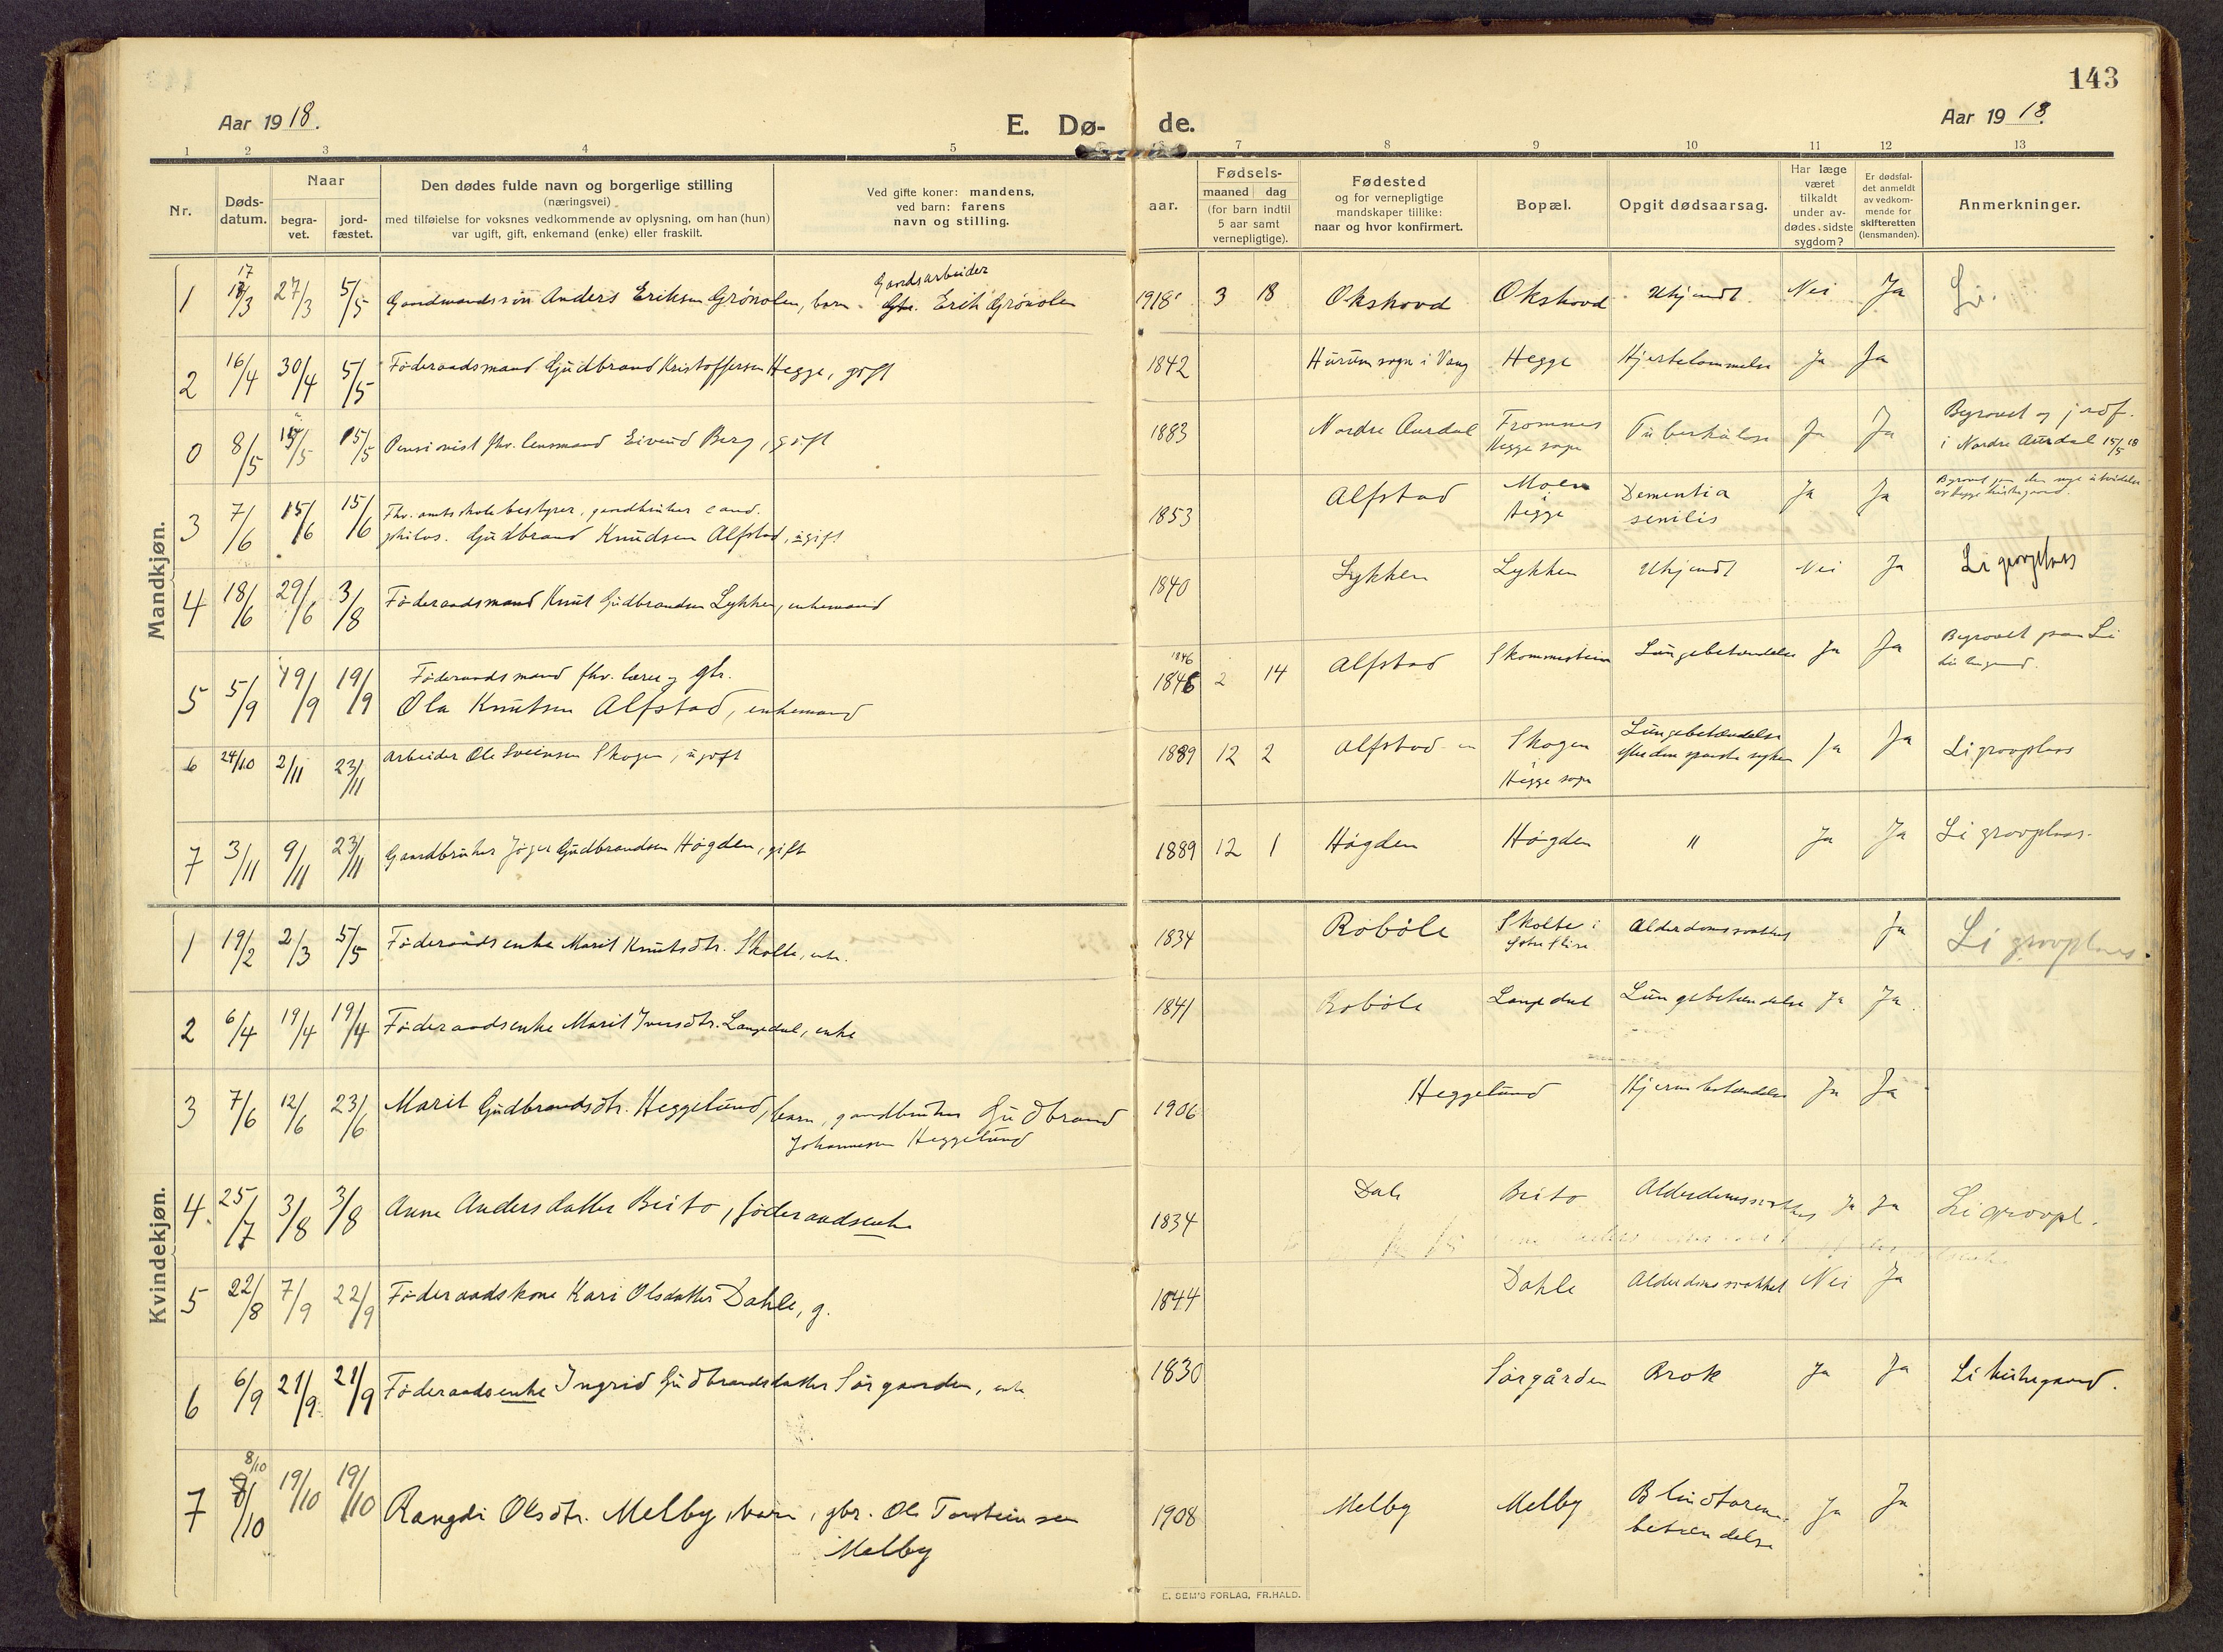 143
Aar 1918.
E. Dø-
de.
Aar 1918.
1 2 3 4 5 7 8 9 10 11 12 13
Nr.
Døds-
datum.
Naar
begra-
vet.
jord-
fæstet.
Den dødes fulde navn og borgerlige stilling
(næringsvei)
med tilføielse for voksnes vedkommende av oplysning, om han (hun)
var ugift, gift, enkemand (enke) eller fraskilt.
Ved gifte koner: mandens,
ved barn: farens
navn og stilling.
Fødsels-
aar.
maaned dag
(for barn indtil
5 aar samt
vernepligtige).
Fødested
og for vernepligtige
mandskaper tillike:
naar og hvor konfirmert.
Bopæl.
Opgit dødsaarsag.
Har læge
været
tilkaldt
under av-
dødes sidste
sygdom?
Er dødsfal-
det anmeldt
av vedkom-
mende for
skifteretten
(lensmanden).
Anmerkninger.
Mandkjøn.
Gaardsarbeider
1 17/3 27/3 5/5 Gaardmandssøn Anders Eriksen Grønolen, barn. Erik Grønolen 1918 3 18 Okshovd Okshovd Ukjendt Nei Ja Li.
2 16/4 30/4 5/5 Føderaadsmand Gudbrand Kristoffersen Hegge, gift 1842 Hurum sogn i Vang Hegge Hjertelammelse Ja Ja
0 8/5 15/5 15/5 Pensionist fhv. lensmand Eivind Berg, gift 1883 Nordre Aurdal Frommes Tuberkulose Ja Ja Begravet og jordf.
Hegge sogn
i Nordre Aurdal 15/5 18
3 7/6 15/6 15/6 Fhv. amtsskolebestyrer, gaardbruker cand.
philos. Gudbrand Knudsen Alfstad, ugift 1853 Alfstad Moen Dementia Ja Ja
i Hegge senilis
4 18/6 29/6 3/8 Føderaadsmand Knut Gudbrandsen Lykken, enkemand 1840 Lykken Lykken Ukjendt Nei Ja Li gravplass
5 5/9 19/9 19/9 Føderaadsmand fhv. lærer og gbr.
Ola Knutsen Alfstad, enkemand 1846 1846 2 14 Alfstad Skommestein Lungebetændelse Ja Ja Begravet paa Li
6 24/10 2/11 23/11 Arbeider Ole Sveinsen Skogen, ugift 1889 12 2 Alfstad Skogen Lungebetændelse Ja Ja Li gravplass
i efter den spanske syken
Hegge sogn
7 3/11 9/11 23/11 Gaardbruker Gudbrandsen Høgden, gift 1889 12 1 Høgden Høgden " Ja Ja Li gravplass.
Kvindekjøn.
1 19/2 2/3 5/5 Føderaadsenke Marit Knutsdtr. Skolte, enke. 1834 Robøle Skolte i Alderdomssvakhet Ja Li gravplass.
2 6/4 19/4 19/4 Føderaadsenke Marit Iversdtr. Langedal, enke 1841 Robøle Langedal Lungebetændelse Ja Ja.
3 7/6 12/6 23/6 Marit Gudbrandsdtr. Heggelund, barn, gaardbruker Gudbrand 1906 Heggelund Hjernebetændelse Ja Ja
Johannesen Heggelund
4. 25/7 3/8 3/8 Anne Andersdatter Beito, føderaadsenke 1834 Dale Beito Alderdomssvakhet Ja Ja Li gravpl.
5 22/8 7/9 22/9 Føderaadskone Kari Olsdatter Dahle, g. 1844 Dahle Alderdomssvakhet Nei Ja
6 6/9 21/9 21/9 Føderaadsenke Ingrid Gudbrandsdatter Sørgaarden, enke 1830 Sørgården Brok Ja Ja Li kirkegaard.
8/10
7 8/10 19/10 19/10 Rangdi Olsdtr. Melby, barn, gbr. Ole Torsteinsen 1908 Melby Melby Blindtarm- Ja Ja
Melby betændelse
E. SEM'S FORLAG, FR.HALD.